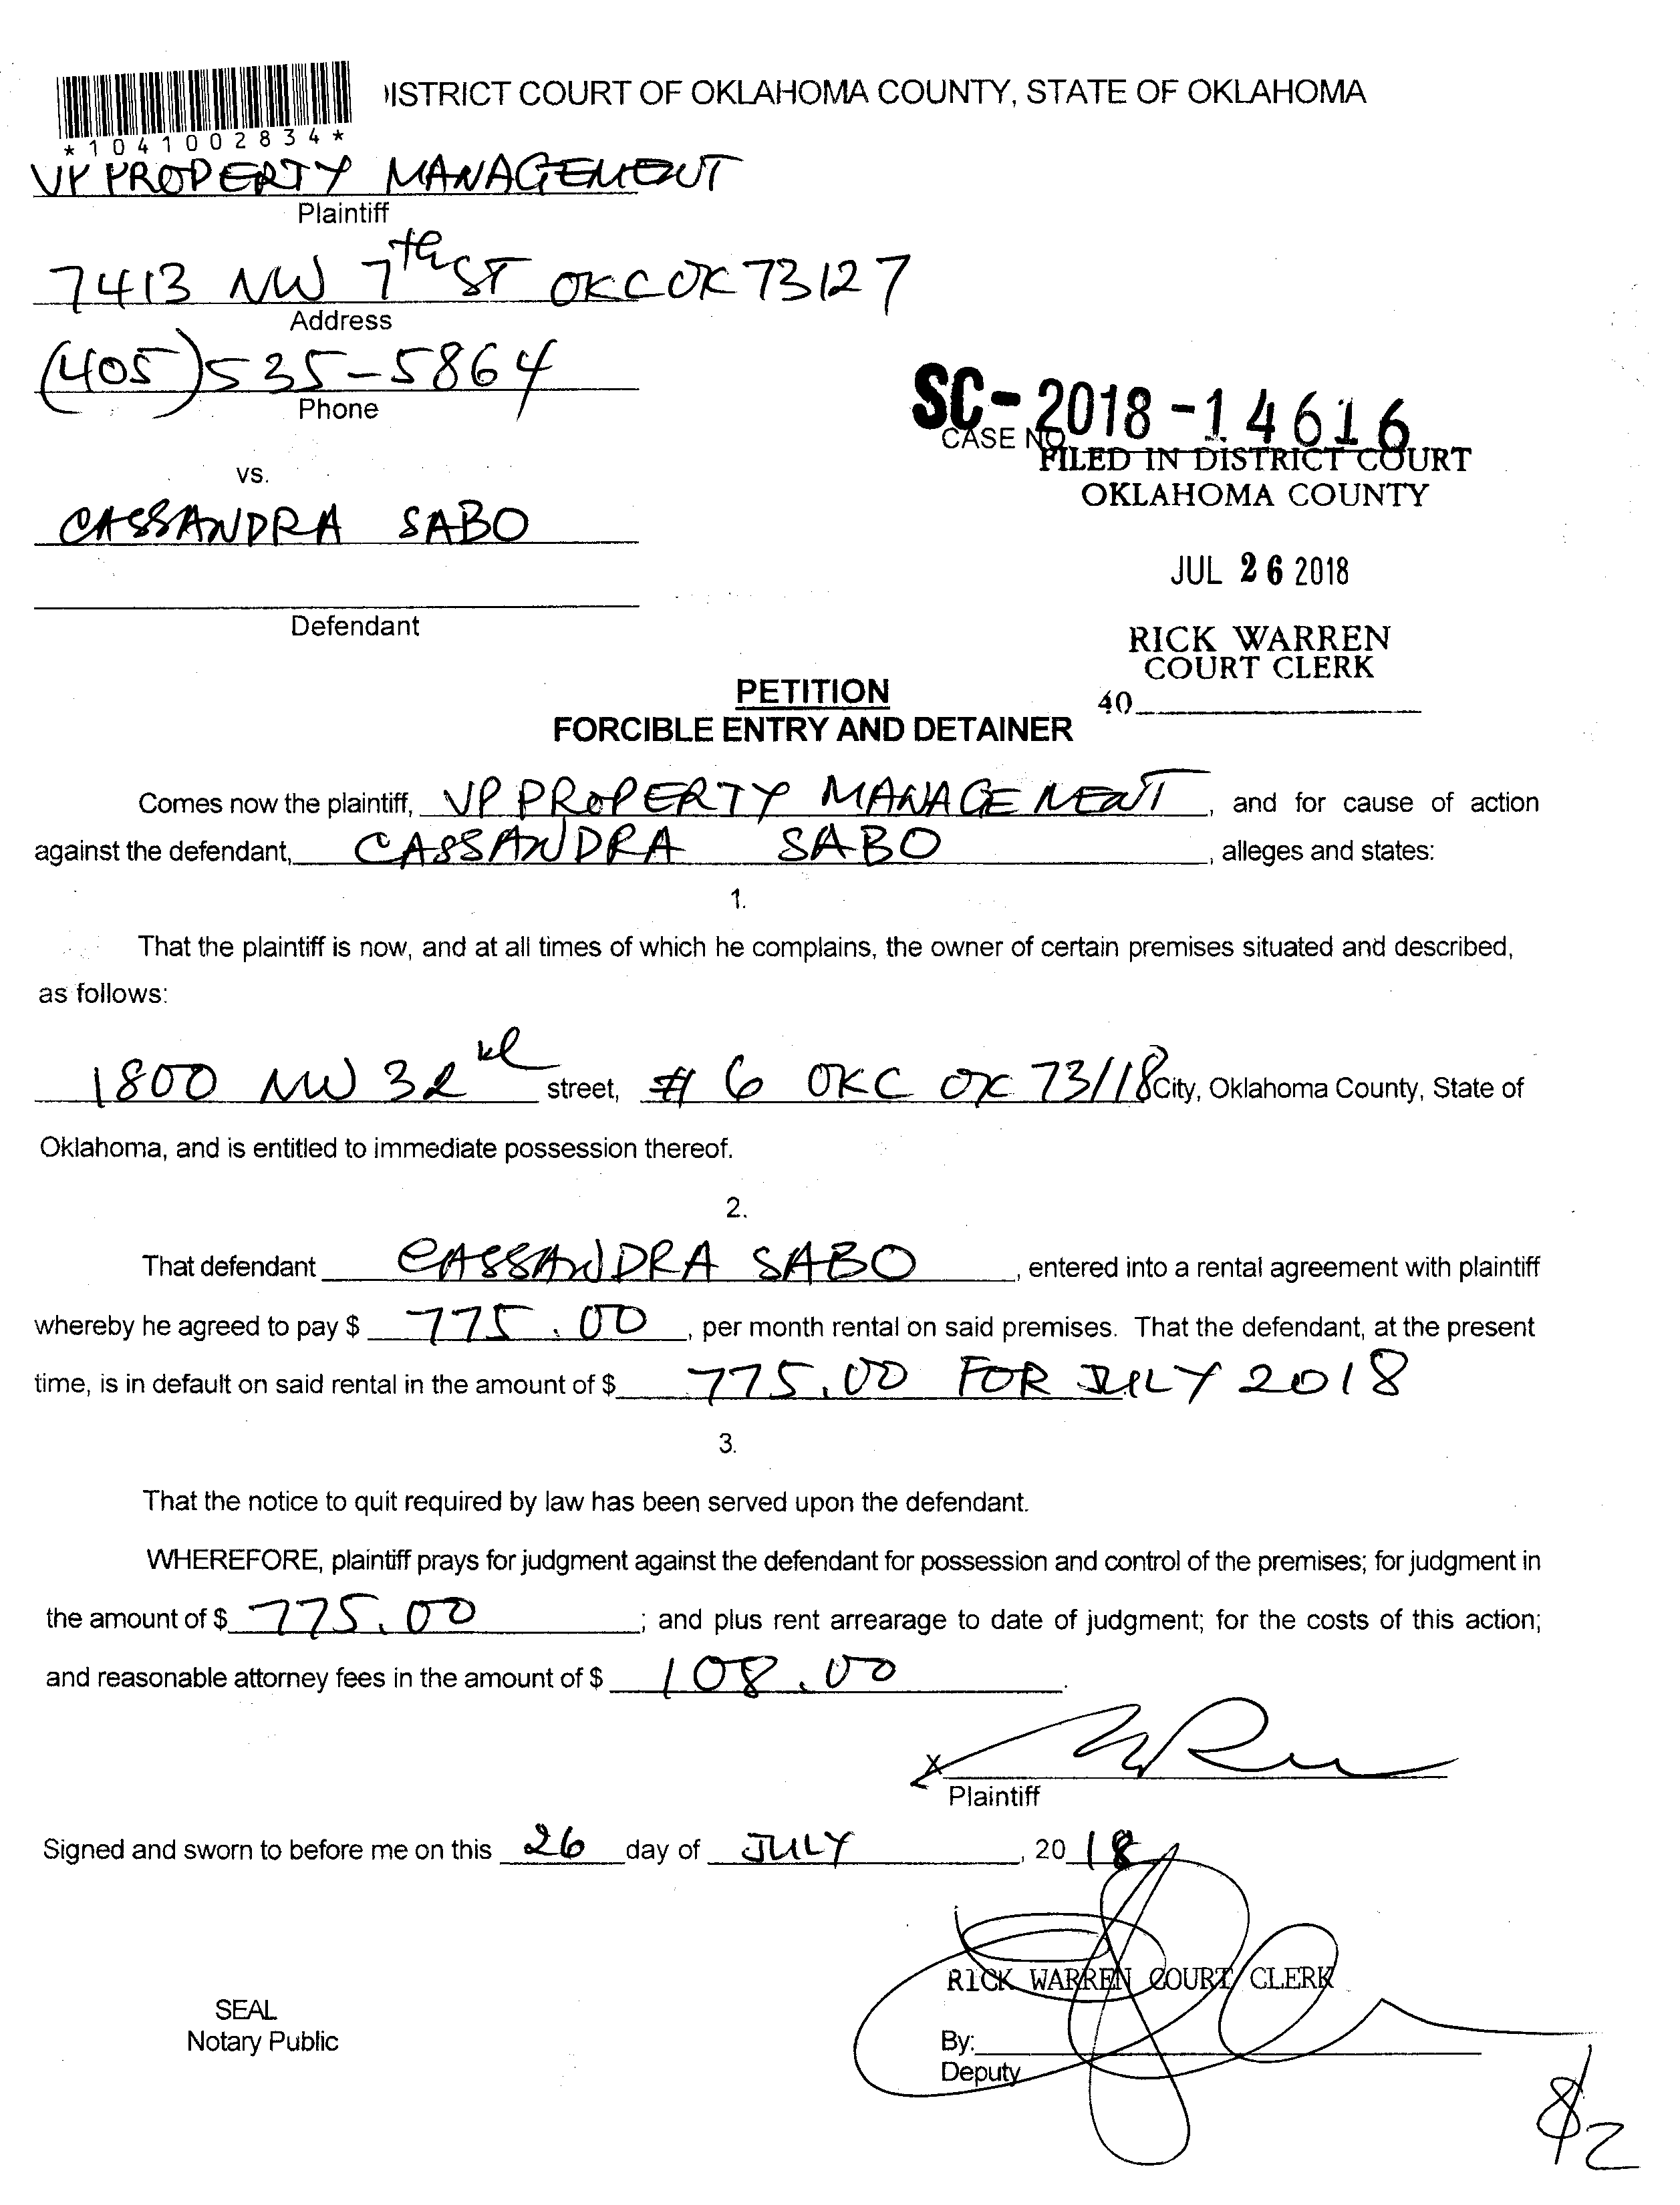 ISTRICT COURT OF OKLAHOMA COUNTY, STATE OF OKLAHOMA
*1041002834*
VP PROPERTY MANAGEMENT
Plaintiff
7413 NW 7th ST OKC OK 73127
Address
(405) 535-5864
Phone
SC-2018-14616
CASE NO.
FILED IN DISTRICT COURT
OKLAHOMA COUNTY
vs.
CASSANDRA SABO
JUL 26 2018
Defendant
RICK WARREN
COURT CLERK
40
PETITION
FORCIBLE ENTRY AND DETAINER
Comes now the plaintiff, VP PROPERTY MANAGEMENT, and for cause of action
against the defendant, CASSANDRA SABO, alleges and states:
1.
That the plaintiff is now, and at all times of which he complains, the owner of certain premises situated and described,
as follows:
1800 NW 32 street, # 6 OKC OK 73118 City, Oklahoma County, State of
Oklahoma, and is entitled to immediate possession thereof.
2.
That defendant CASSANDRA SABO, entered into a rental agreement with plaintiff
whereby he agreed to pay $ 775.00, per month rental on said premises. That the defendant, at the present
time, is in default on said rental in the amount of $ 775.00 FOR JULY 2018
3.
That the notice to quit required by law has been served upon the defendant.
WHEREFORE, plaintiff prays for judgment against the defendant for possession and control of the premises; for judgment in
the amount of $ 775.00; and plus rent arrearage to date of judgment; for the costs of this action;
and reasonable attorney fees in the amount of $ 108.00.
X
Plaintiff
Signed and sworn to before me on this 26 day of JULY, 2018
RICK WARREN COURT CLERK
SEAL
Notary Public
By:
Deputy